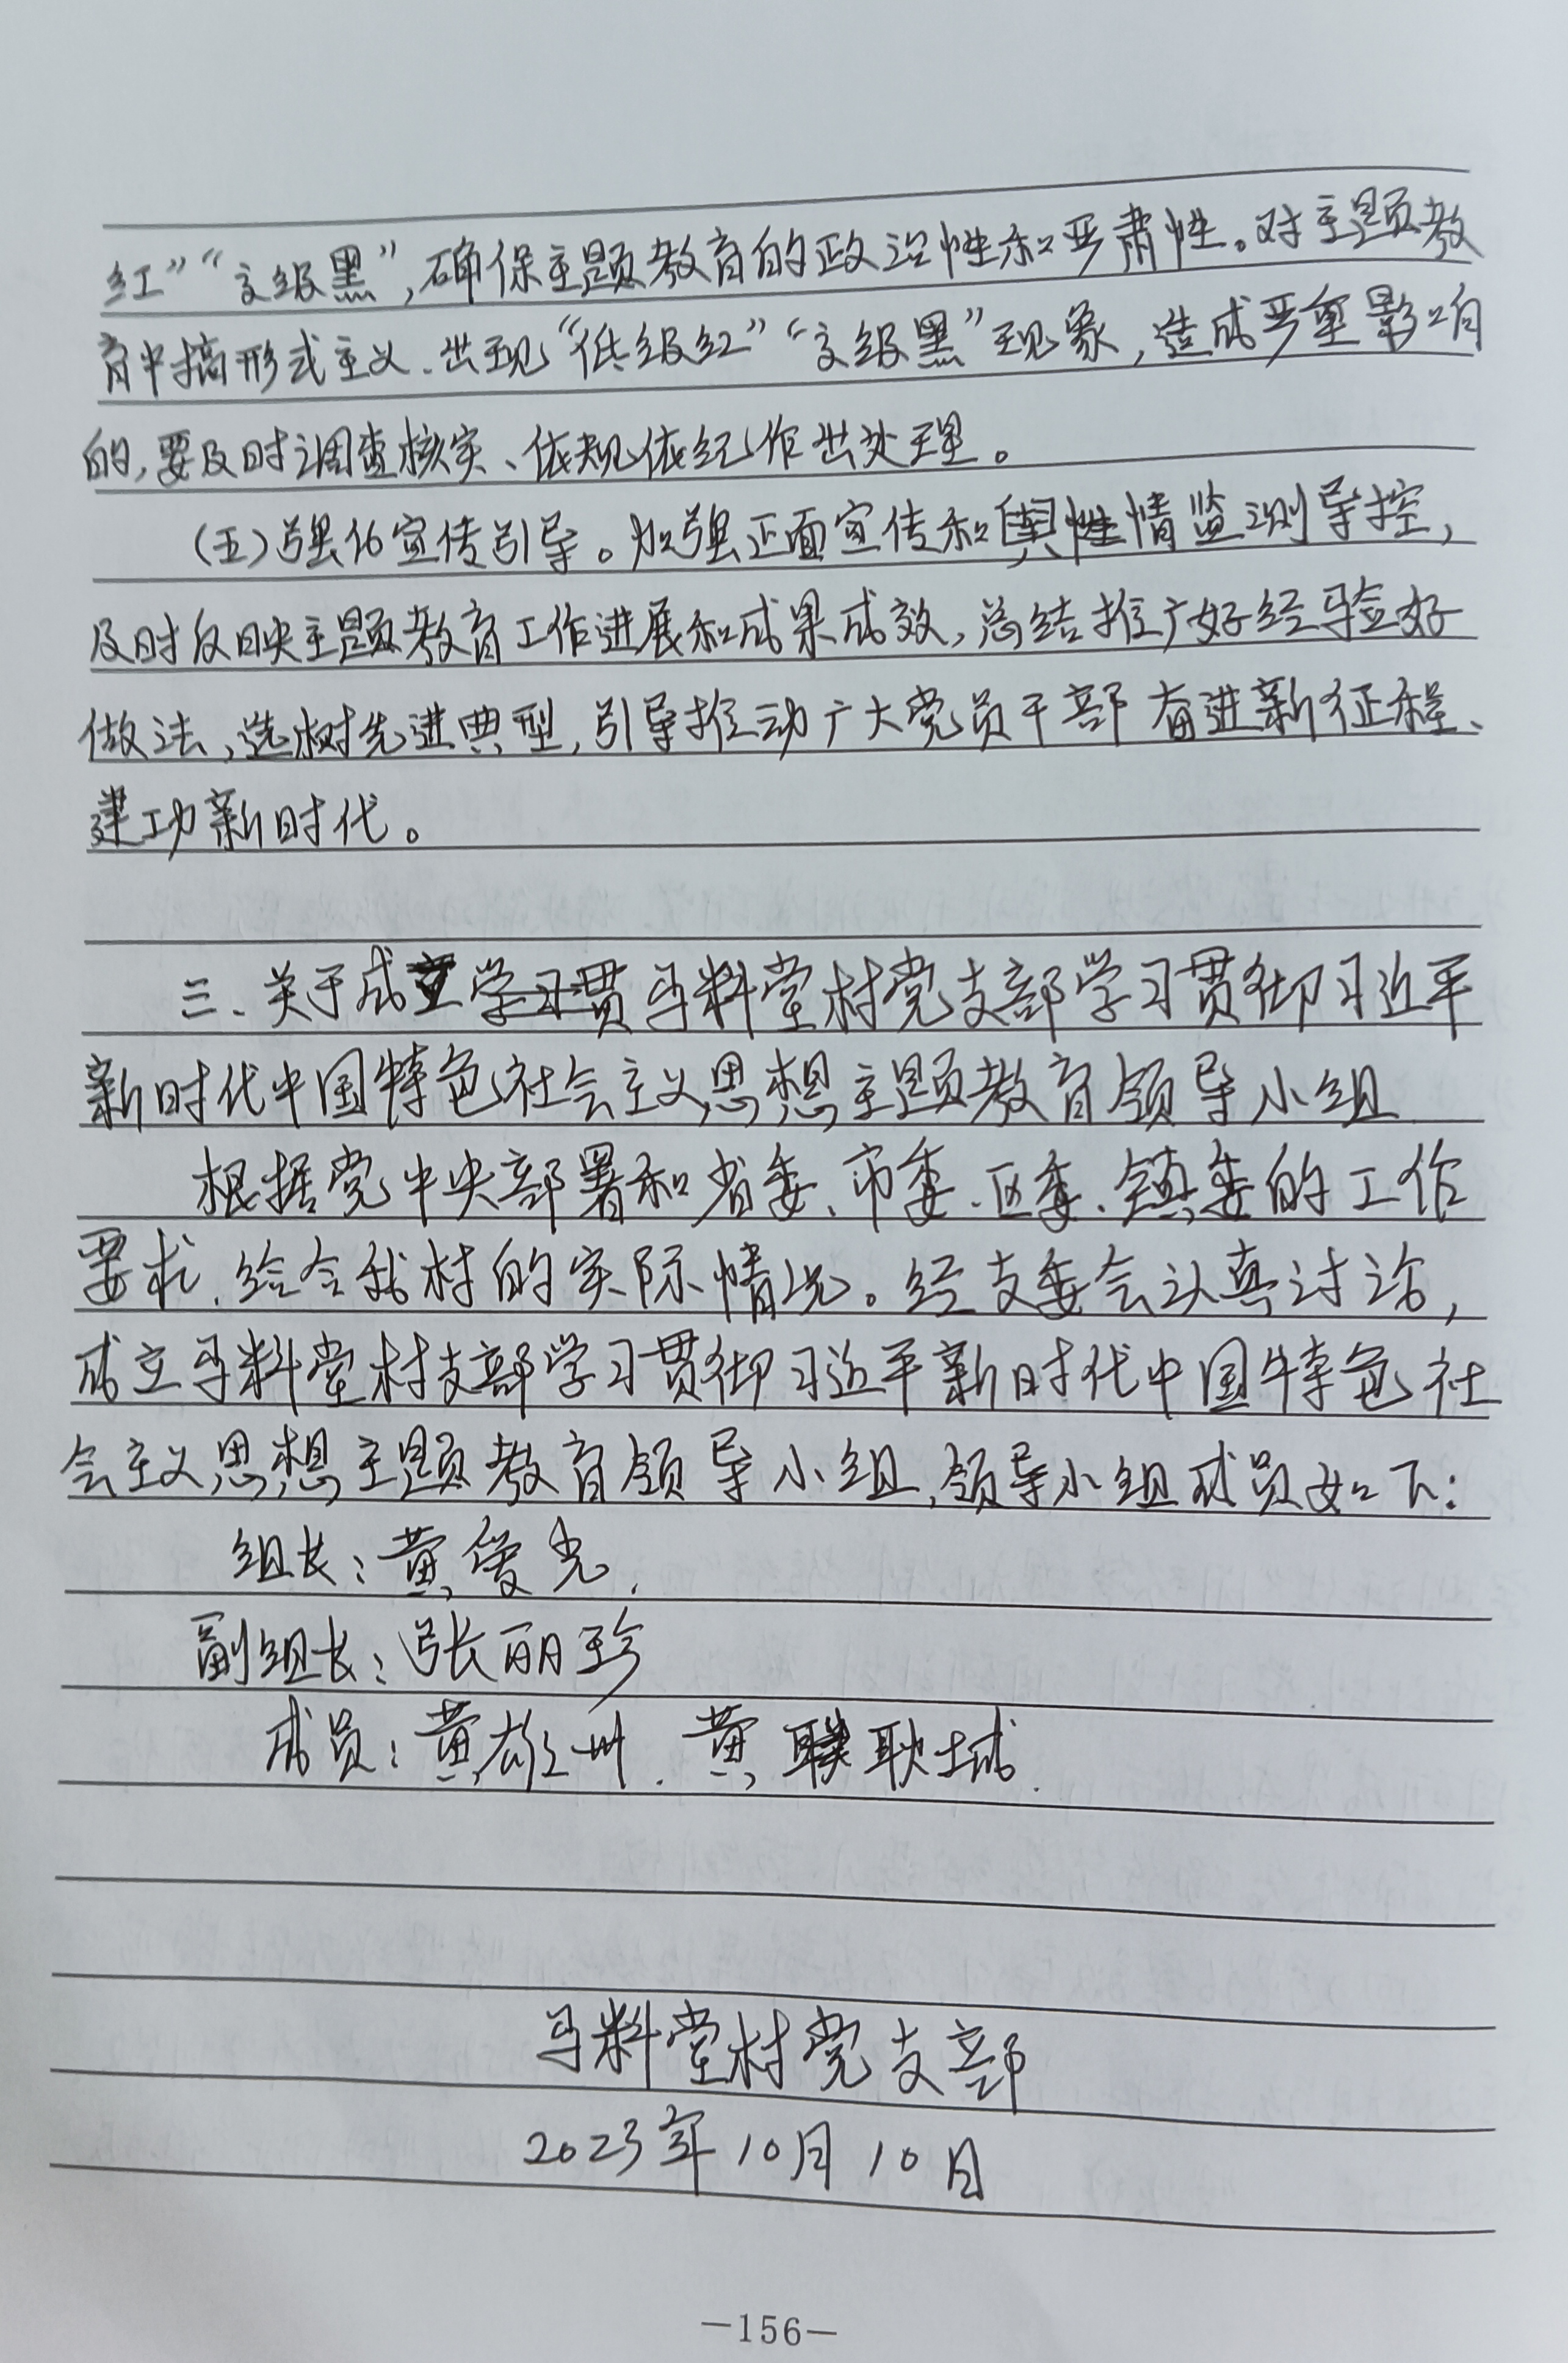 红”“高级黑”,确保主题教育的政治性和严肃性。对主题教
育中搞形式主义、出现“低级红”“高级黑”现象,造成严重影响
的,要及时调查核实、依规依纪作出处理。
(五)强化宣传引导。加强正面宣传和舆情监测导控,
及时反映主题教育工作进展和成果成效,总结推广好经验好
做法,选树先进典型,引导推动广大党员干部奋进新征程、
建功新时代。
三、关于成立马料堂村党支部学习贯彻习近平
新时代中国特色社会主义思想主题教育领导小组
根据党中央部署和省委、市委、区委、镇委的工作
要求,结合我村的实际情况。经支委会认真讨论,
成立马料堂村支部学习贯彻习近平新时代中国特色社
会主义思想主题教育领导小组,领导小组成员如下:
组长:黄爱光.
副组长:张丽珍
成员:黄雄州、黄耿城.
马料堂村党支部
2023年10月10日
—156—